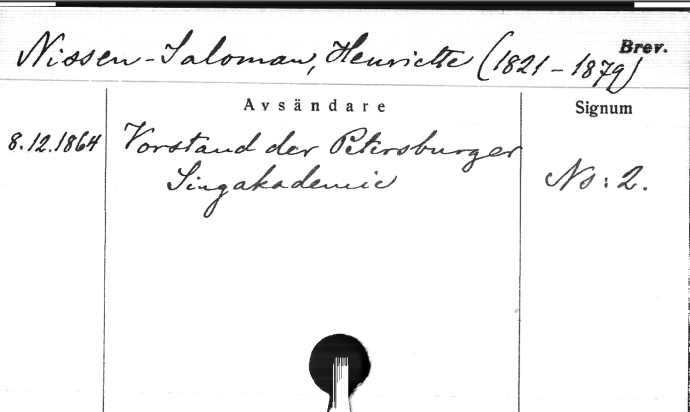 Nissen-Saloman, Henriette (1821-1879)
Brev.
Avsändare
Signum
8.12.1864 Vorstand der Petersburger
Singakademie
Ns: 2.